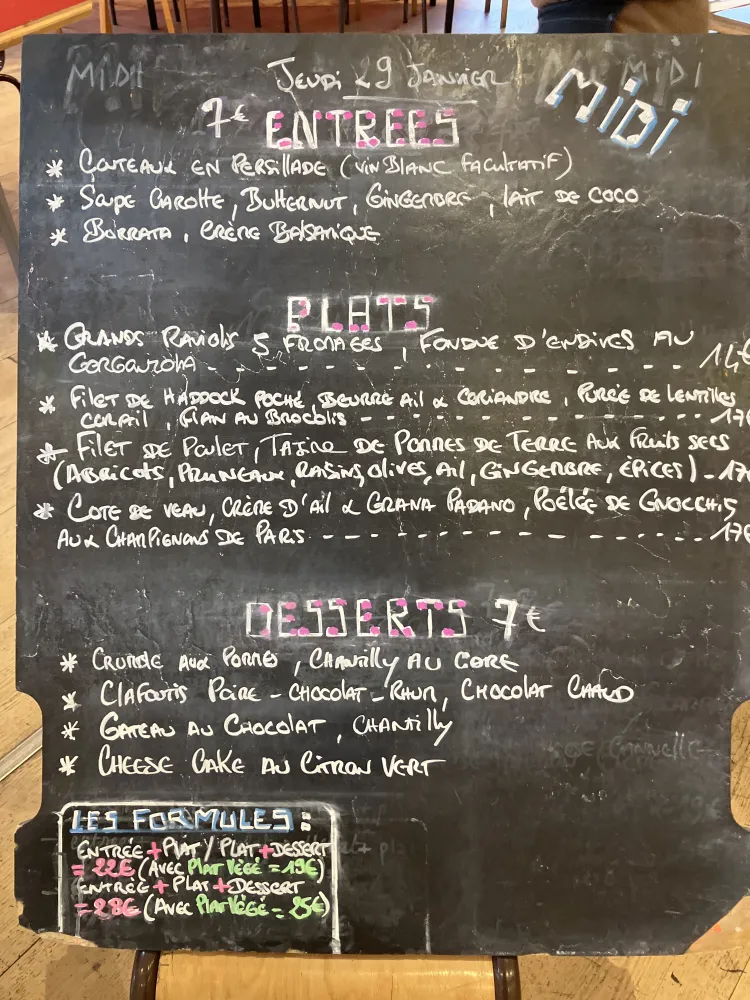 MIDI Jeudi 29 Janvier MiDi
7€ ENTREES
* Couteaux en Persillade (vin Blanc facultatif)
* Soupe Carotte, Butternut, Gingembre, lait de coco
* Burrata, Crème Balsamique
PLATS
* Grands Raviolis 5 fromages, Fondue d'endives au
Gorgonzola - - - - - - - - - - - 14€
* Filet de Haddock poché Beurre ail & Coriandre, Purée de lentilles
corail, Flan au Brocolis - - - - - - - - - - - 17€
* Filet de Poulet, Tajine de Pommes de Terre aux fruits secs
(Abricots, Pruneaux, Raisins, olives, Ail, Gingembre, épices) - 17€
* Cote de veau, Crème d'ail & Grana Padano, Poêlée de Gnocchis
aux Champignons de Paris - - - - - - - - - - - 17€
DESSERTS 7€
* Crumble aux Pommes, Chantilly au Core
* Clafoutis Poire - Chocolat - Rhum, Chocolat Chaud
* Gateau au Chocolat, Chantilly
* Cheese Cake au Citron vert
LES FORMULES :
Entrée + Plat / Plat + Dessert
= 22€ (Avec Plat Végé = 19€)
Entrée + Plat + Dessert
= 28€ (Avec Plat Végé = 25€)